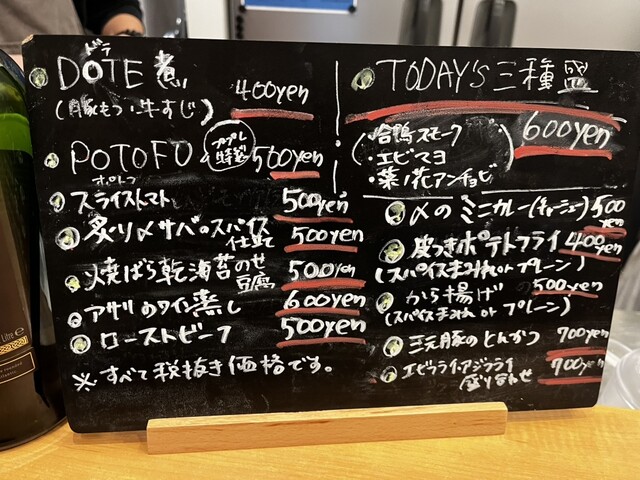 DOTE煮 400yen
ドテ
(豚もつ・牛すじ)
POTOFU 500yen
ポトフ
特製
スライストマト 500yen
炙り〆サバのスパイス仕立て 500yen
焼ばら乾海苔のせ豆腐 500yen
アサリのワイン蒸し 600yen
ローストビーフ 500yen
※すべて税抜き価格です。
TODAY'S 三種盛 600yen
・合鴨スモーク
・エビマヨ
・菜ノ花アンチョビ
〆のミニカレー(チャーシュー) 500
皮つきポテトフライ 400yen
(スパイスまみれ or プレーン)
から揚げ 500yen
(スパイスまみれ or プレーン)
三元豚のとんかつ 700yen
エビフライ・アジフライ盛り合わせ 700yen
Litre e